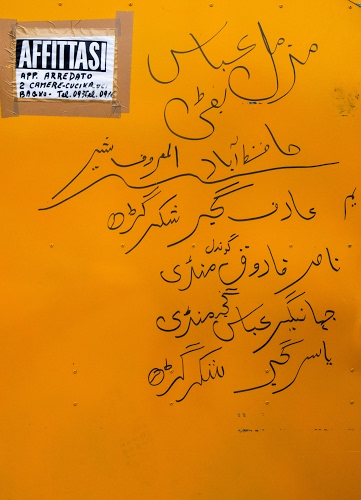 AFFITTASI
APP. ARREDATO
2 CAMERE-CUCINA
BAGNO. Tel.
مزمل عباس
بھٹی
حافظ آباد المعروف شیر
عارف گجر شکر گڑھ
ناصر فاروق گوندل منڈی
جہانگیر عباس گجر منڈی
یاسر گجر شکر گڑھ